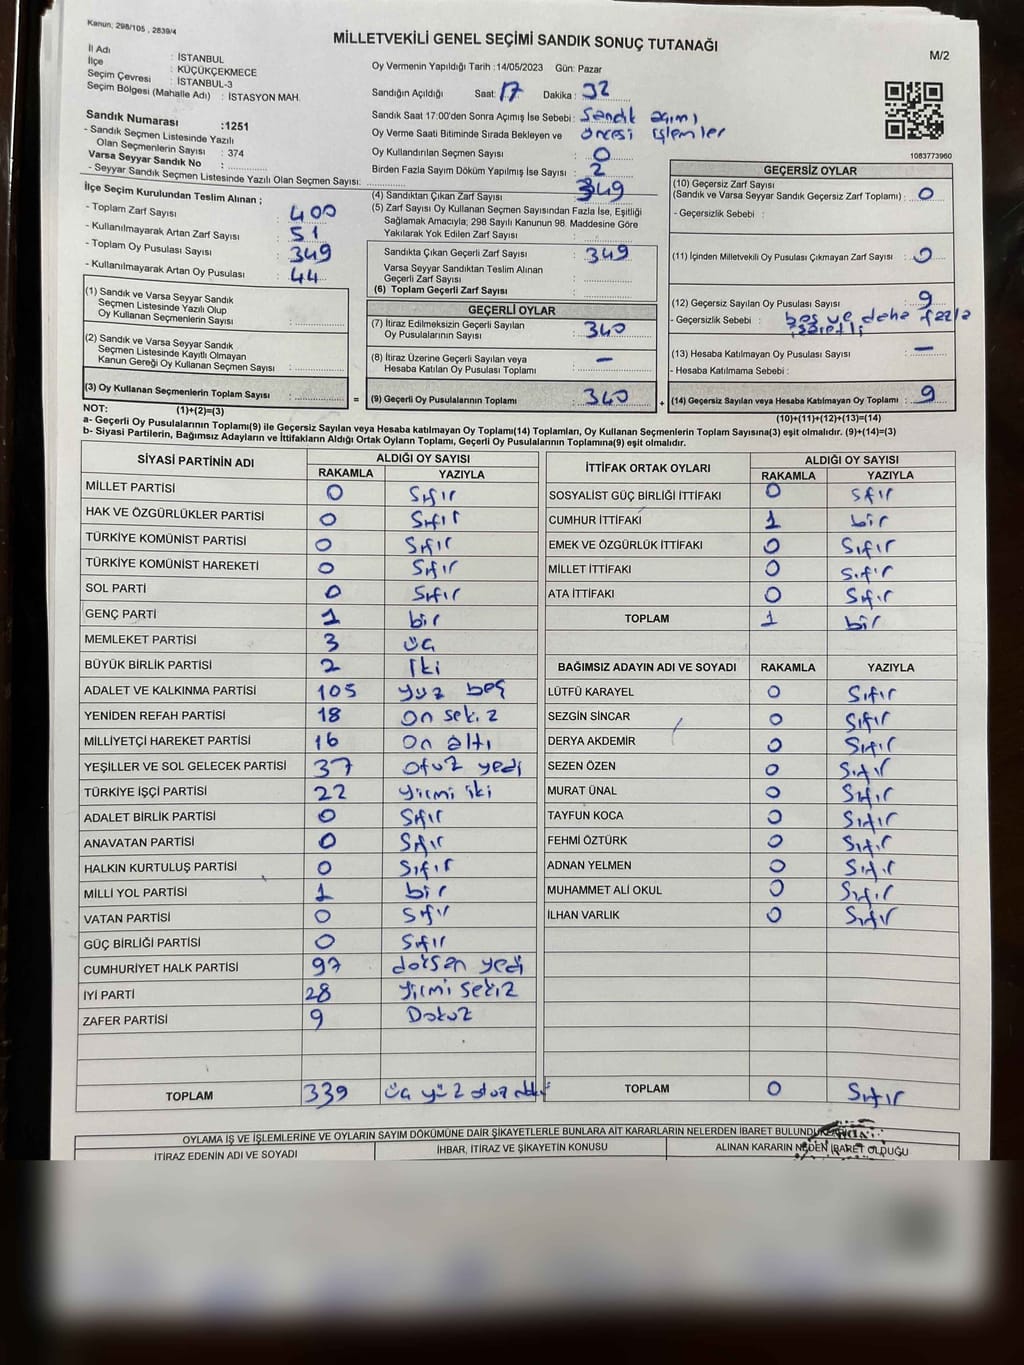 Kanun: 298/105 , 2839/4
MİLLETVEKİLİ GENEL SEÇİMİ SANDIK SONUÇ TUTANAĞI
M/2
İl Adı : İSTANBUL
İlçe : KÜÇÜKÇEKMECE
Seçim Çevresi : İSTANBUL-3
Seçim Bölgesi (Mahalle Adı) : İSTASYON MAH.
Oy Vermenin Yapıldığı Tarih :14/05/2023 Gün: Pazar
Sandığın Açıldığı Saat: 17 Dakika : 32
Sandık Saat 17:00'den Sonra Açımış İse Sebebi : Sandık açımı
Oy Verme Saati Bitiminde Sırada Bekleyen ve öncesi işlemler
Oy Kullandırılan Seçmen Sayısı : 0
Birden Fazla Sayım Döküm Yapılmış İse Sayısı : 2
1083773960
Sandık Numarası :1251
- Sandık Seçmen Listesinde Yazılı
Olan Seçmenlerin Sayısı : 374
Varsa Seyyar Sandık No :
- Seyyar Sandık Seçmen Listesinde Yazılı Olan Seçmen Sayısı:
İlçe Seçim Kurulundan Teslim Alınan ;
- Toplam Zarf Sayısı : 400
- Kullanılmayarak Artan Zarf Sayısı : 51
- Toplam Oy Pusulası Sayısı : 349
- Kullanılmayarak Artan Oy Pusulası : 44
(1) Sandık ve Varsa Seyyar Sandık
Seçmen Listesinde Yazılı Olup
Oy Kullanan Seçmenlerin Sayısı :
(2) Sandık ve Varsa Seyyar Sandık
Seçmen Listesinde Kayıtlı Olmayan
Kanun Gereği Oy Kullanan Seçmen Sayısı :
(3) Oy Kullanan Seçmenlerin Toplam Sayısı :
(1)+(2)=(3)
(4) Sandıktan Çıkan Zarf Sayısı : 349
(5) Zarf Sayısı Oy Kullanan Seçmen Sayısından Fazla İse, Eşitliği
Sağlamak Amacıyla; 298 Sayılı Kanunun 98. Maddesine Göre
Yakılarak Yok Edilen Zarf Sayısı :
Sandıkta Çıkan Geçerli Zarf Sayısı : 349
Varsa Seyyar Sandıktan Teslim Alınan
Geçerli Zarf Sayısı :
(6) Toplam Geçerli Zarf Sayısı :
GEÇERLİ OYLAR
(7) İtiraz Edilmeksizin Geçerli Sayılan
Oy Pusulalarının Sayısı : 340
(8) İtiraz Üzerine Geçerli Sayılan veya
Hesaba Katılan Oy Pusulası Toplamı : –
= (9) Geçerli Oy Pusulalarının Toplamı : 340 +
GEÇERSİZ OYLAR
(10) Geçersiz Zarf Sayısı
(Sandık ve Varsa Seyyar Sandık Geçersiz Zarf Toplamı) : 0
- Geçersizlik Sebebi :
(11) İçinden Milletvekili Oy Pusulası Çıkmayan Zarf Sayısı : 0
(12) Geçersiz Sayılan Oy Pusulası Sayısı : 9
- Geçersizlik Sebebi : beş ve daha fazla
işaretli
(13) Hesaba Katılmayan Oy Pusulası Sayısı : –
- Hesaba Katılmama Sebebi :
(14) Geçersiz Sayılan veya Hesaba Katılmayan Oy Toplamı : 9
(10)+(11)+(12)+(13)=(14)
NOT:
a- Geçerli Oy Pusulalarının Toplamı(9) ile Geçersiz Sayılan veya Hesaba katılmayan Oy Toplamı(14) Toplamları, Oy Kullanan Seçmenlerin Toplam Sayısına(3) eşit olmalıdır. (9)+(14)=(3)
b- Siyasi Partilerin, Bağımsız Adayların ve İttifakların Aldığı Ortak Oyların Toplamı, Geçerli Oy Pusulalarının Toplamına(9) eşit olmalıdır.
SİYASİ PARTİNİN ADI ALDIĞI OY SAYISI
RAKAMLA YAZIYLA
MİLLET PARTİSİ 0 Sıfır
HAK VE ÖZGÜRLÜKLER PARTİSİ 0 Sıfır
TÜRKİYE KOMÜNİST PARTİSİ 0 Sıfır
TÜRKİYE KOMÜNİST HAREKETİ 0 Sıfır
SOL PARTİ 0 Sıfır
GENÇ PARTİ 1 bir
MEMLEKET PARTİSİ 3 üç
BÜYÜK BİRLİK PARTİSİ 2 İki
ADALET VE KALKINMA PARTİSİ 105 yüz beş
YENİDEN REFAH PARTİSİ 18 on sekiz
MİLLİYETÇİ HAREKET PARTİSİ 16 on altı
YEŞİLLER VE SOL GELECEK PARTİSİ 37 otuz yedi
TÜRKİYE İŞÇİ PARTİSİ 22 yirmi iki
ADALET BİRLİK PARTİSİ 0 Sıfır
ANAVATAN PARTİSİ 0 Sıfır
HALKIN KURTULUŞ PARTİSİ 0 Sıfır
MİLLİ YOL PARTİSİ 1 bir
VATAN PARTİSİ 0 Sıfır
GÜÇ BİRLİĞİ PARTİSİ 0 Sıfır
CUMHURİYET HALK PARTİSİ 97 doksan yedi
İYİ PARTİ 28 yirmi sekiz
ZAFER PARTİSİ 9 Dokuz
TOPLAM 339 üç yüz otuz
İTTİFAK ORTAK OYLARI ALDIĞI OY SAYISI
RAKAMLA YAZIYLA
SOSYALİST GÜÇ BİRLİĞİ İTTİFAKI 0 Sıfır
CUMHUR İTTİFAKI 1 bir
EMEK VE ÖZGÜRLÜK İTTİFAKI 0 Sıfır
MİLLET İTTİFAKI 0 Sıfır
ATA İTTİFAKI 0 Sıfır
TOPLAM 1 bir
BAĞIMSIZ ADAYIN ADI VE SOYADI RAKAMLA YAZIYLA
LÜTFÜ KARAYEL 0 Sıfır
SEZGİN SİNCAR 0 Sıfır
DERYA AKDEMİR 0 Sıfır
SEZEN ÖZEN 0 Sıfır
MURAT ÜNAL 0 Sıfır
TAYFUN KOCA 0 Sıfır
FEHMİ ÖZTÜRK 0 Sıfır
ADNAN YELMEN 0 Sıfır
MUHAMMET ALİ OKUL 0 Sıfır
İLHAN VARLIK 0 Sıfır
TOPLAM 0 Sıfır
OYLAMA İŞ VE İŞLEMLERİNE VE OYLARIN SAYIM DÖKÜMÜNE DAİR ŞİKAYETLERLE BUNLARA AİT KARARLARIN NELERDEN İBARET
İTİRAZ EDENİN ADI VE SOYADI İHBAR, İTİRAZ VE ŞİKAYETİN KONUSU ALINAN KARARIN NEDEN İBARET OLDUĞU